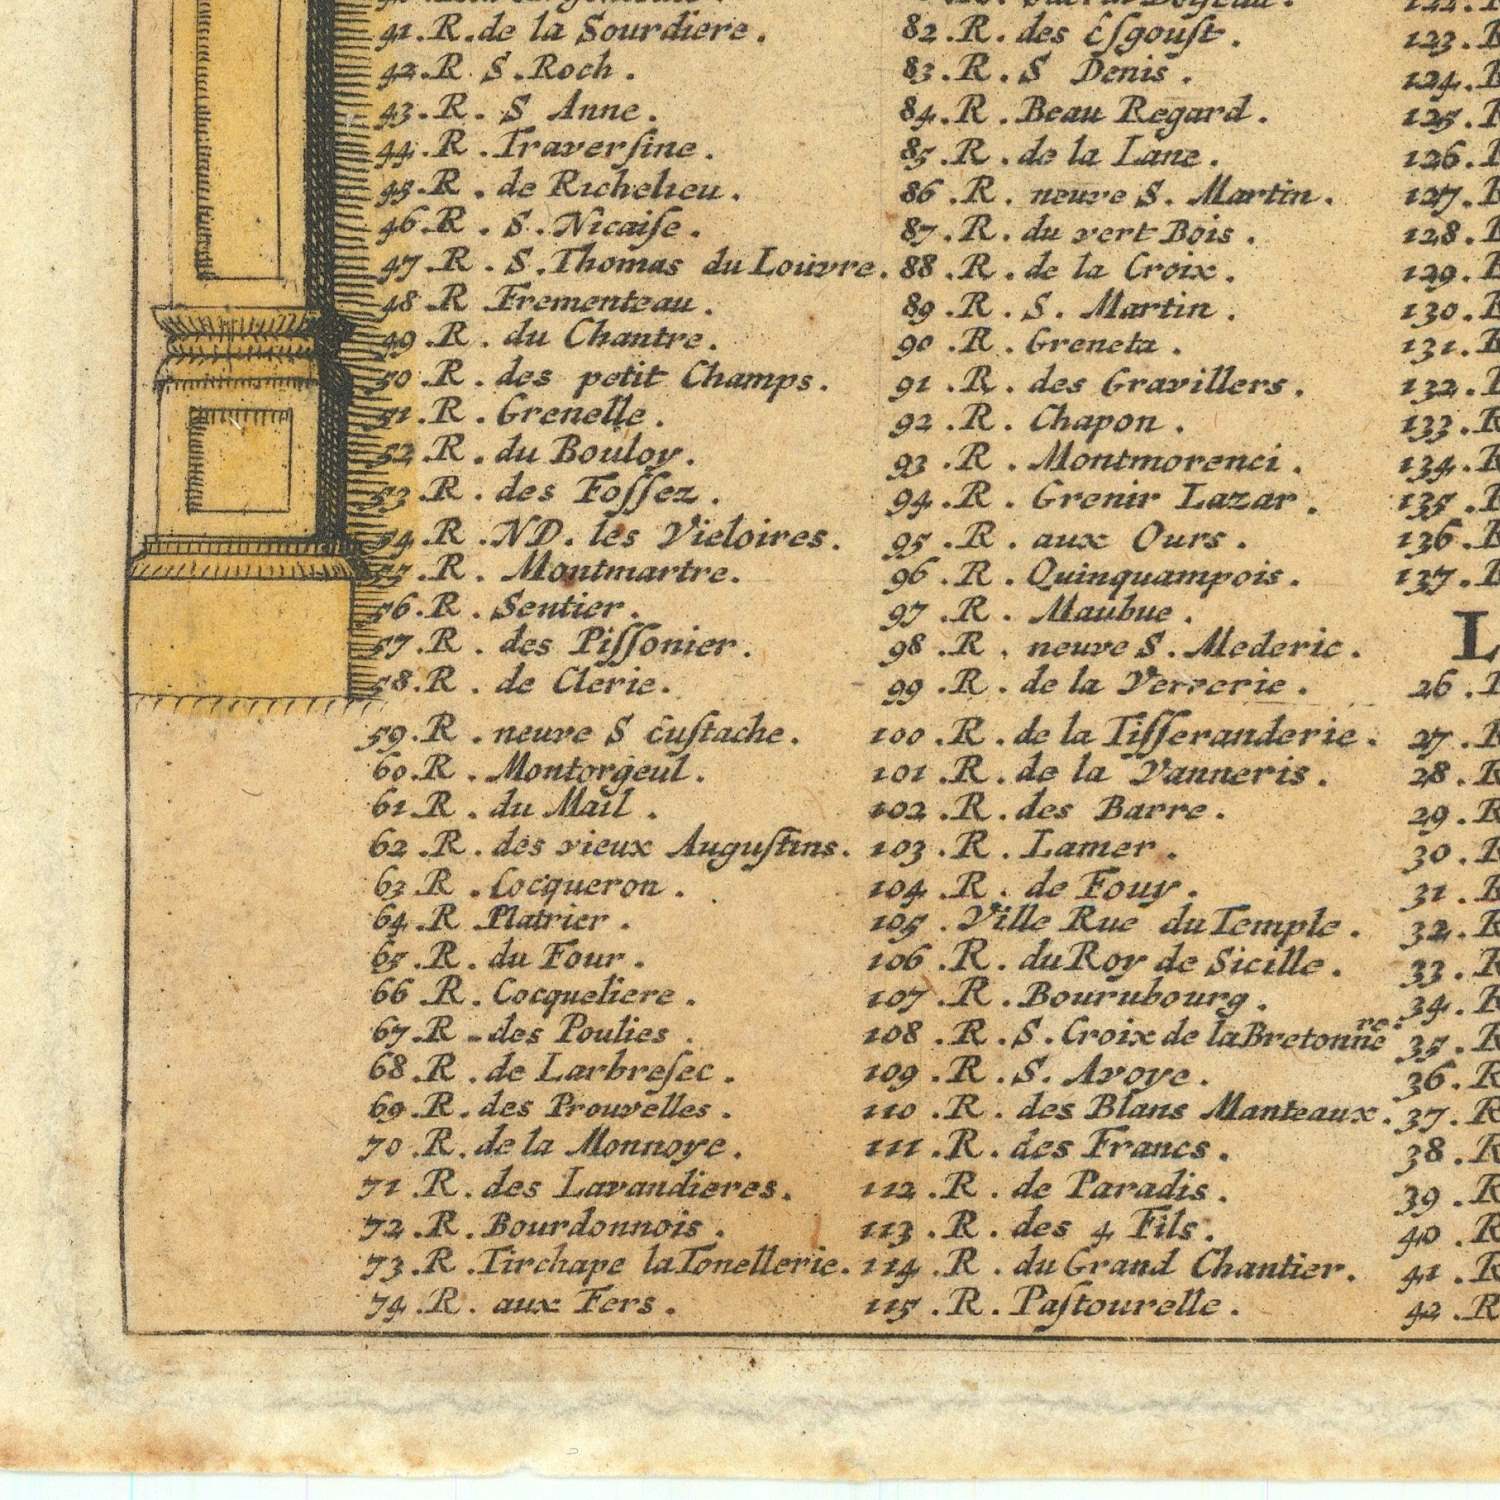 41. R. de la Sourdiere.
42. R S. Roch.
43. R. S Anne.
44. R. Traverſine.
45. R. de Richelieu.
46. R. S. Nicaiſe.
47. R. S. Thomas du Louvre.
48 R Frementeau.
49. R. du Chantre.
50. R. des petit Champs.
51. R. Grenelle.
52. R. du Bouloy.
53. R. des Foſſez.
54. R. ND. les Vieloires.
55. R. Montmartre.
56. R. Sentier.
57. R. des Piſſonier.
58. R. de Clerie.
59. R. neuve S Euſtache.
60. R. Montorgeul.
61. R. du Mail.
62. R. des vieux Auguſtins.
63 R. Cocqueron.
64. R Platrier.
65. R. du Four.
66 R. Cocqueliere.
67. R - des Poulies.
68. R. de Larbreſec.
69. R. des Prouvelles.
70 R. de la Monnoye.
71. R. des Lavandieres.
72. R. Bourdonnois.
73. R. Tirchape la Tonellerie.
74. R. aux Fers.
82. R. des Eſgouſt.
83. R. S Denis.
84. R. Beau Regard.
85. R. de la Lane.
86. R. neuve S. Martin.
87. R. du vert Bois.
88. R. de la Croix.
89. R. S. Martin.
90. R. Greneta.
91. R. des Gravillers.
92. R. Chapon.
93. R. Montmorenci.
94. R. Grenir Lazar.
95. R. aux Ours.
96. R. Quinquampois.
97. R. Maubue.
98. R. neuve S. Mederic.
99. R. de la Verrerie.
100. R. de la Tiſſeranderie.
101. R. de la Vanneris.
102. R. des Barre.
103. R. Lamer.
104. R. de Fouy.
105. Ville Rue du Temple.
106. R. du Roy de Sicille.
107. R. Bourubourg.
108. R. S. Croix de la Bretonnere.
109. R. S. Avoye.
110. R. des Blans Manteaux.
111. R. des Francs.
112. R. de Paradis.
113. R. des 4 Fils.
114. R. du Grand Chantier.
115. R. Paſtourelle.
123. R
124. R
125. R
126. R
127. R
128. R
129. R
130. R
131. R
132. R
133. R
134. R
135. R
136. R
137. R
L
26. R
27. R
28. R
29. R
30. R
31. R
32. R
33. R
34. R
35. R
36. R
37. R
38. R
39. R
40. R
41. R
42. R